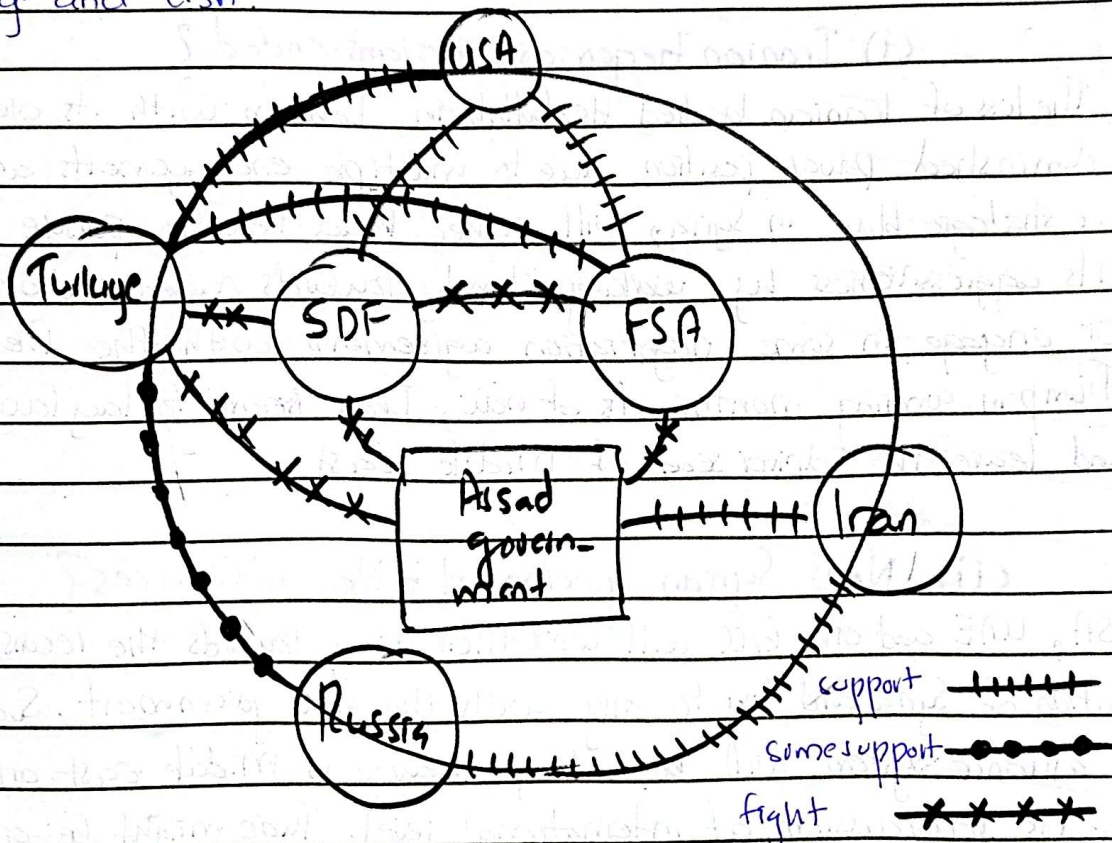 and USA.
USA
Turkiye
SDF
FSA
Assad
govern-
ment
Iran
Russia
support
some support
fight